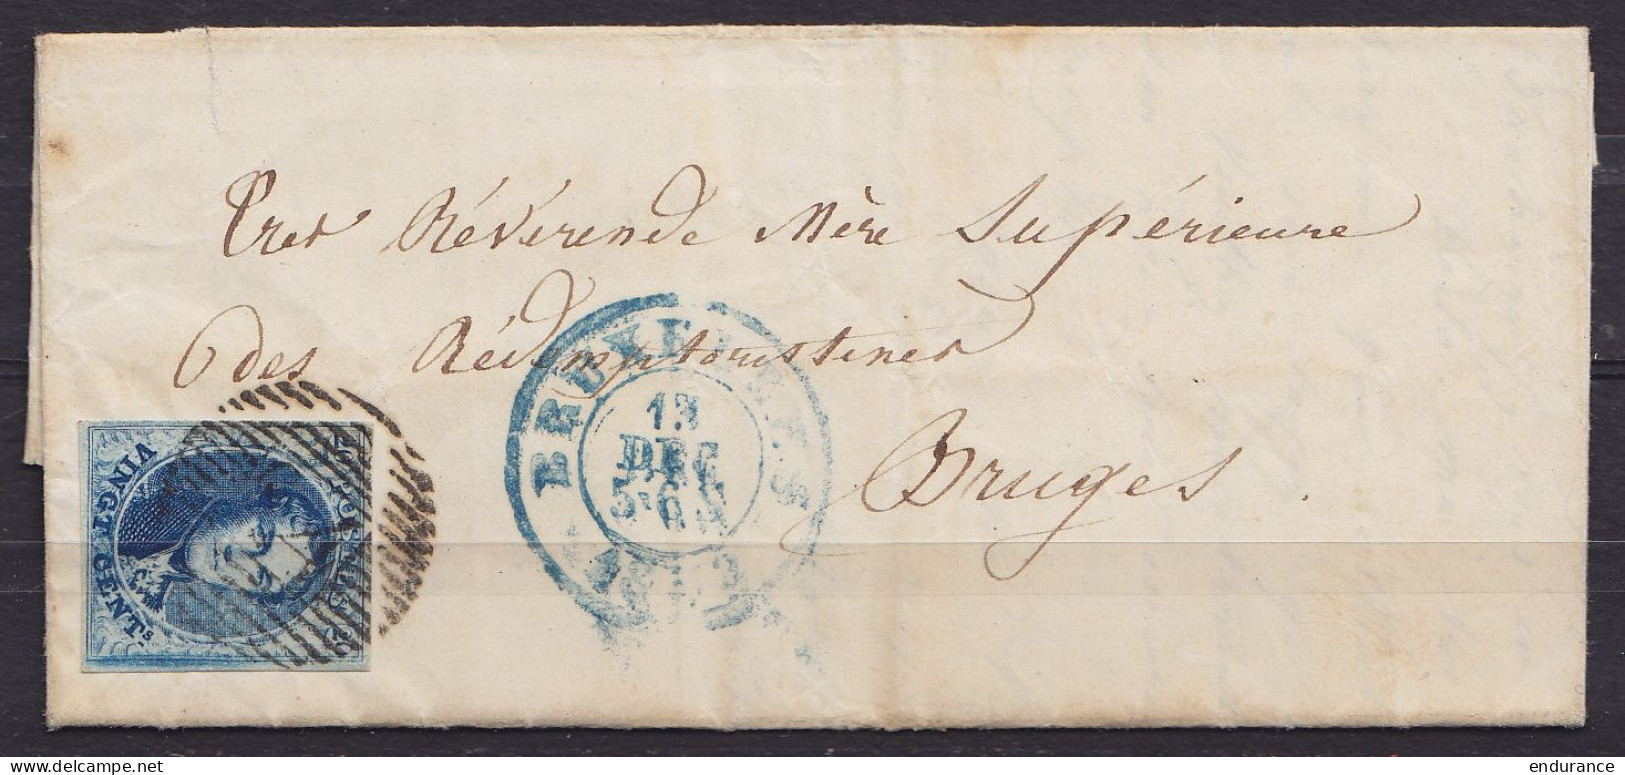 Tres Révérende Mère Supérieure
des Rédemptoristines
Bruges.
BRUXELLES
13
DEC
VINGT CENTS
POSTES
20
endurance
www.delcampe.net